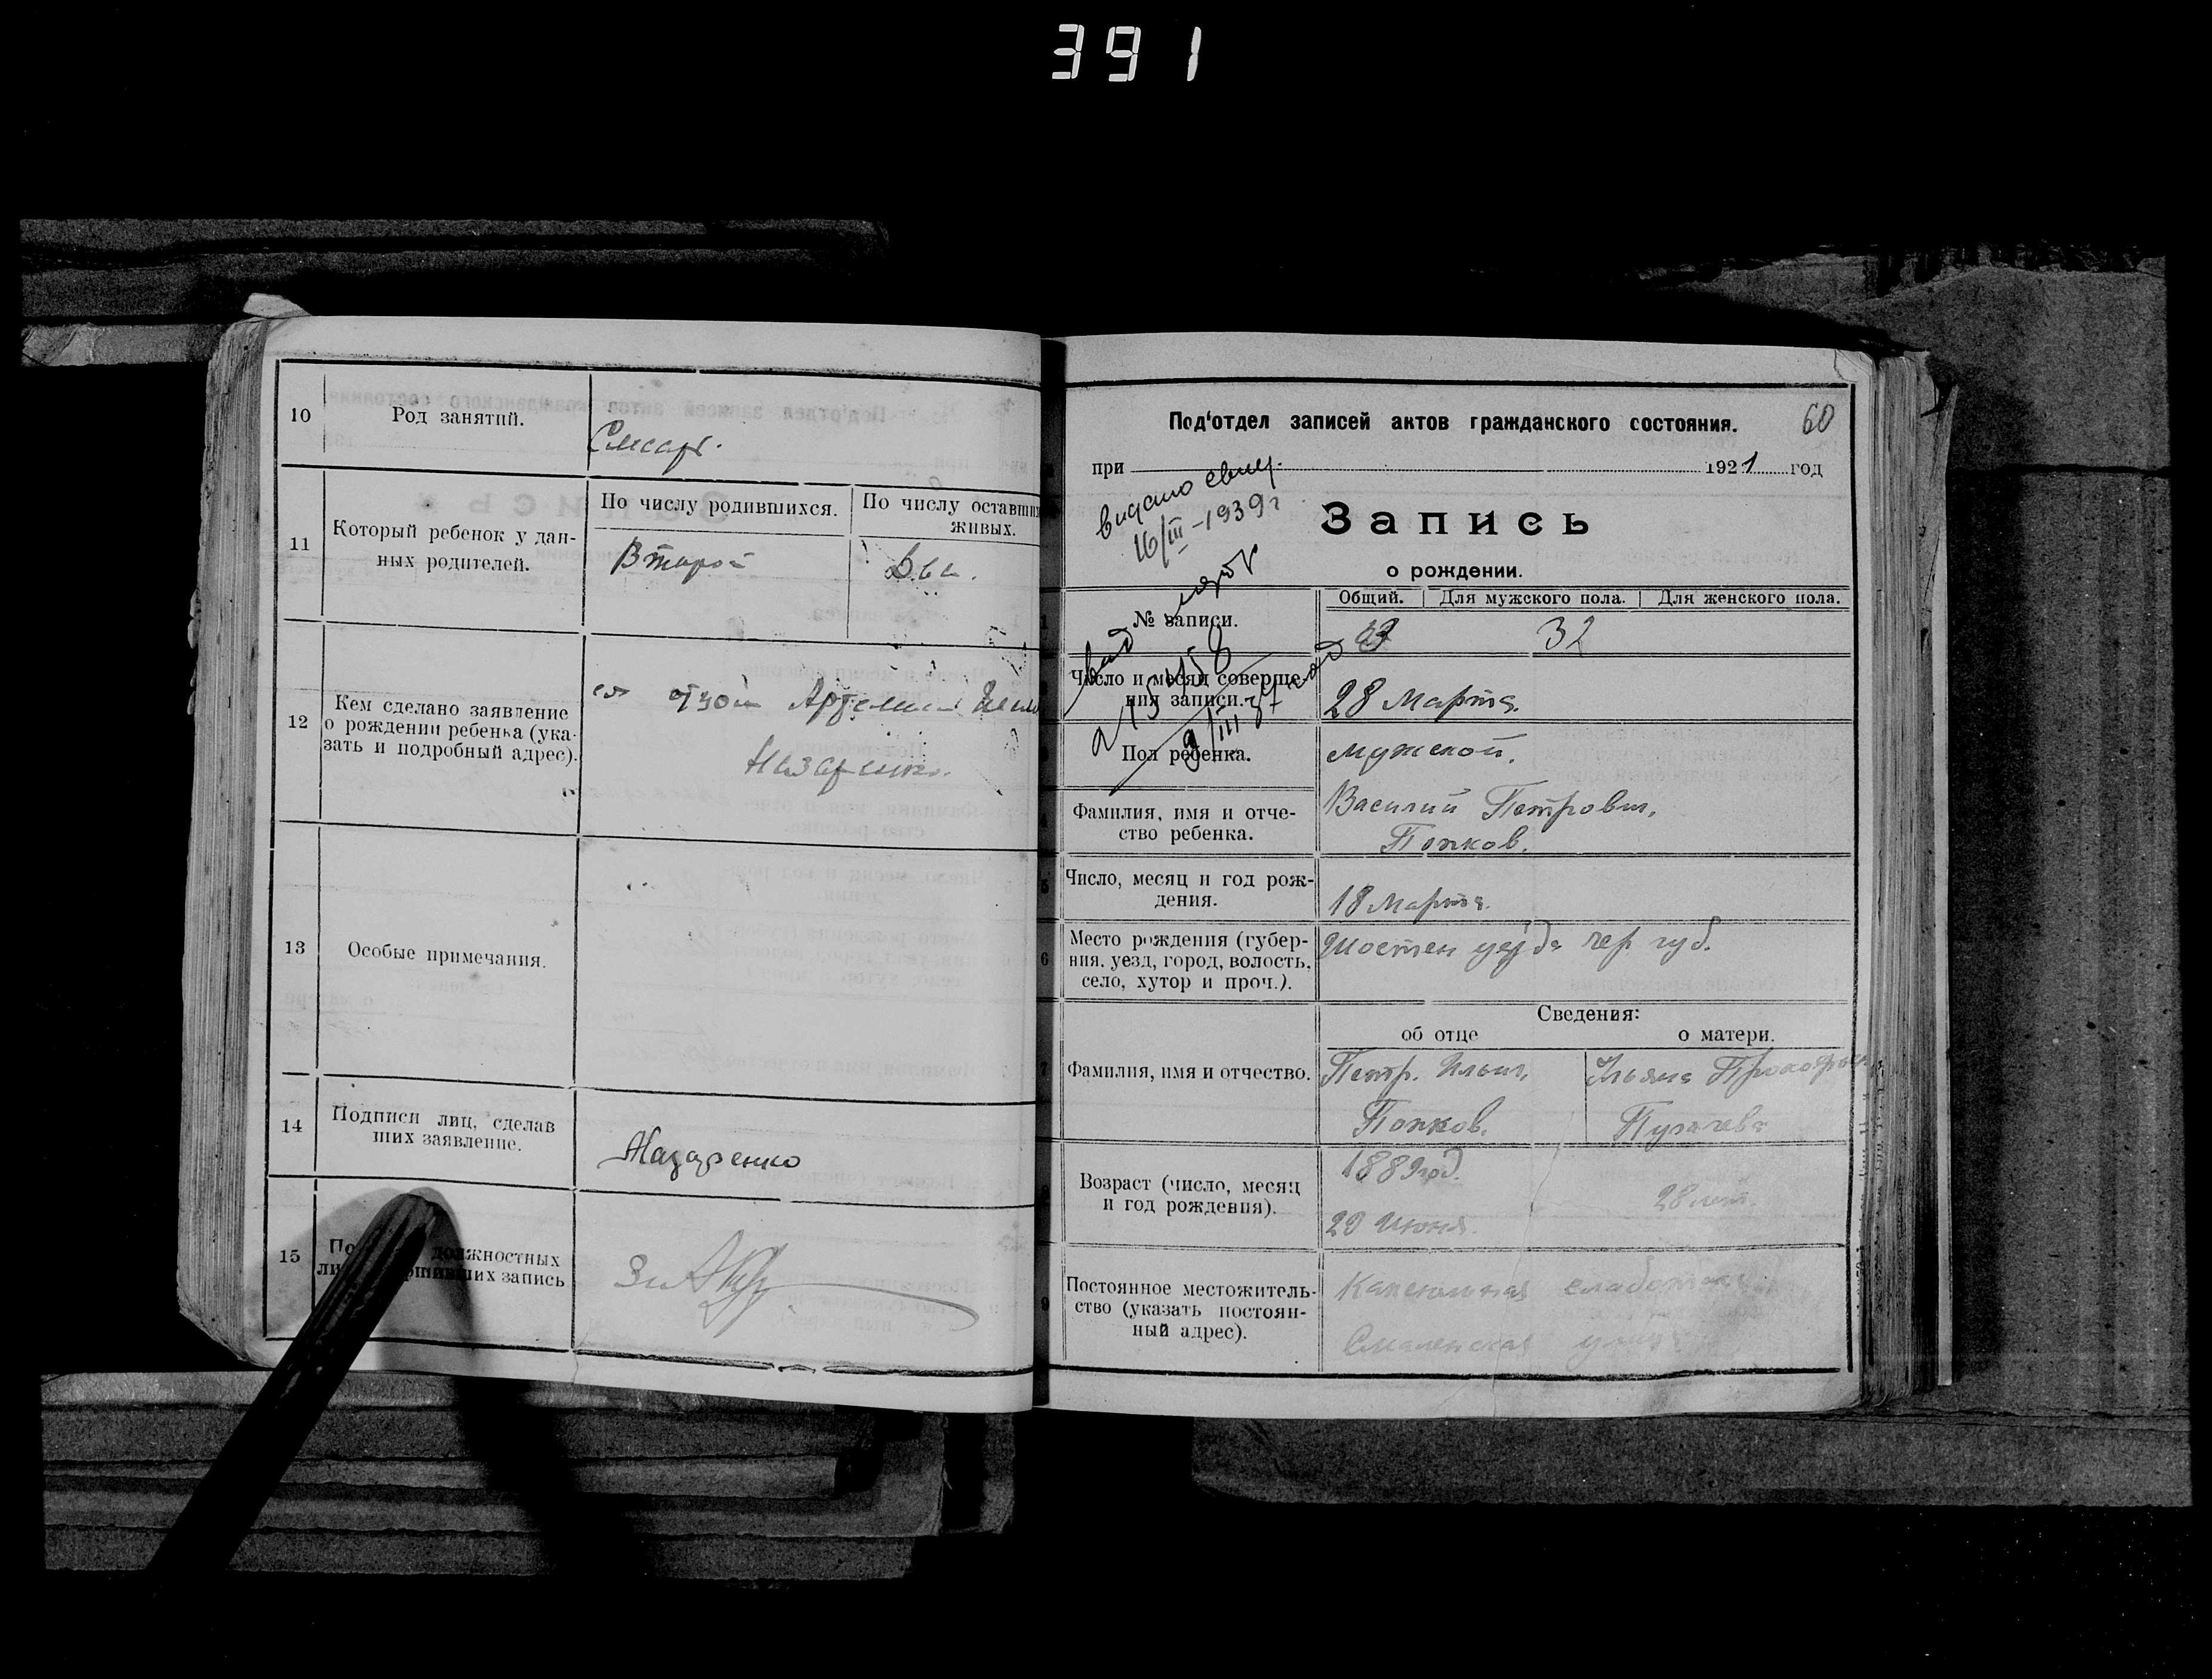 391
10 Род занятий.
Слесарь.
11 Который ребенок у дан-
ных родителей.
По числу родившихся.
По числу оставших
живых.
Второй
два.
12 Кем сделано заявление
о рождении ребенка (ука-
зать и подробный адрес).
отзом Артемий
Назаренко.
13 Особые примечания.
14 Подписи лиц, сделав
ших заявление.
Назаренко
15 По должностных
ли их запись
60
Под'отдел записей актов гражданского состояния.
при 1921 год
видано свид.
16/III-1939 г
Запись
о рождении.
1 № записи.
Общий. Для мужского пола. Для женского пола.
32
Число и месяц соверше-
ния записи.
28 Марта.
Пол ребенка.
Мужской.
4 Фамилия, имя и отче-
ство ребенка.
Василий Петрович,
Попков.
5 Число, месяц и год рож-
дения.
18 Марта.
6 Место рождения (губер-
ния, уезд, город, волость,
село, хутор и проч.).
Шостен уезда чер. губ.
Сведения:
об отце
о матери.
7 Фамилия, имя и отчество.
Петр. Ильич,
Попков.
Ульяна
Пугачева
Возраст (число, месяц
и год рождения).
1889 год.
20 Июня.
28 лет.
9 Постоянное местожитель-
ство (указать постоян-
ный адрес).
Капсюльная слободка
Смоленская